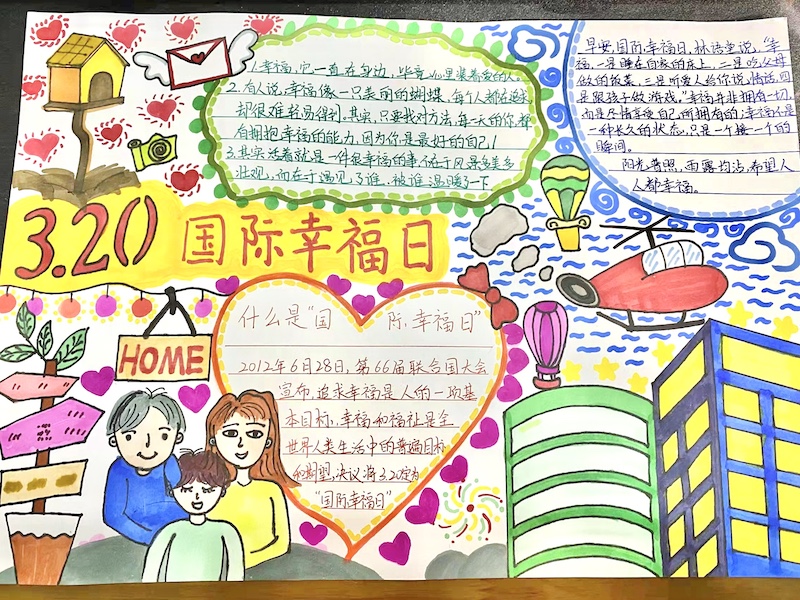 1.幸福,它一直在身边,毕竟心里装着爱的人
2.有人说,幸福像一只美丽的蝴蝶,每个人都在追求
却很难轻易得到。其实,只要找对方法,每一天的你,都
有拥抱幸福的能力,因为你是最好的自己!
3.其实活着就是一件很幸福的事,不在于风景多美多
壮观,而在于遇见了谁,被谁温暖了一下
早安,国际幸福日,林语堂说,“幸
福,一是睡在自家的床上,二是吃父母
做的饭菜,三是听爱人给你说情话,四
是跟孩子做游戏。”幸福并非拥有一切,
而是尽情享受自己所拥有的;幸福不是
一种长久的状态,只是一个接一个的
瞬间。
阳光普照,雨露均沾,希望人
人都幸福。
3.20 国际幸福日
HOME
什么是“国际幸福日”
2012年6月28日,第66届联合国大会
宣布,追求幸福是人的一项基
本目标,幸福和福祉是全
世界人类生活中的普遍目标
和期望,决议将3.20定为
“国际幸福日”